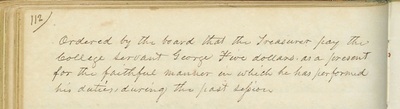 112/
Ordered by the board that the Treasurer pay the
College servant George Five dollars, as a present
for the faithful manner in which he has performed
his duties, during the past session